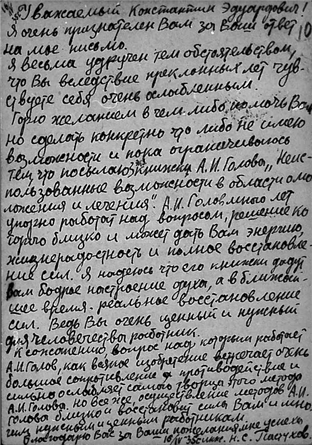 Уважаемый Константин Эдуардович!
Я очень признателен Вам за Ваш ответ
на мое письмо.
Я весьма удручен тем обстоятельством,
что Вы вследствие преклонных лет чув-
ствуете себя очень ослабленным.
Горю желанием в чем либо помочь Вам
но сделать конкретно что либо не имею
возможности и пока ограничиваюсь
тем, что посылаю книжку А.И. Голова, "Неис-
пользованные возможности в области омо-
ложения и лечения". А.И. Голов много лет
упорно работал над вопросом, решение ко
торого близко и может дать Вам энергию,
жизнерадостность и полное восстановле-
ние сил. Я надеюсь что его книжки дадут
Вам бодрое настроение духа, а в ближай-
шее время - реальное восстановление
сил. Ведь Вы очень ценный и нужный
для человечества работник.
К сожалению, вопрос над которым работает
А.И. Голов, как всякое изобретение встречает очень
большое сопротивление и противодействие и
сильно ослабляет самого творца этого метода
А.И. Голова. Но все же, осуществление методов А.И.
Голова близко и восстановит силы Вам и мно-
гим нужным и ценным работникам.
Благодарю Вас за Ваши пожелания мне успеха
10/IV 35